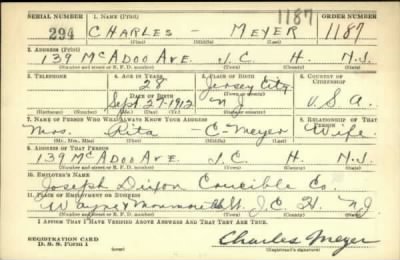 SERIAL NUMBER 1. NAME (Print) 1187 ORDER NUMBER
294 CHARLES - MEYER 1187
(First) (Middle) (Last)
2. ADDRESS (Print)
139 McADOO AVE. J.C. H. N.J.
(Number and street or R. F. D. number) (Town) (County) (State)
3. TELEPHONE 4. AGE IN YEARS 5. PLACE OF BIRTH 6. COUNTRY OF CITIZENSHIP
28 Jersey City
DATE OF BIRTH
Sept 27-1912 N.J. U.S.A.
(Exchange) (No.) (Mo.) (Day) (Yr.) (State or country)
7. NAME OF PERSON WHO WILL ALWAYS KNOW YOUR ADDRESS 8. RELATIONSHIP OF THAT PERSON
Mrs. Rita - C- Meyer Wife
(Mr., Mrs., Miss) (First) (Middle) (Last)
9. ADDRESS OF THAT PERSON
139 McADOO AVE. J.C. H. N.J.
(Number and street or R. F. D. number) (Town) (County) (State)
10. EMPLOYER'S NAME
Joseph Dixon Crucible Co.
11. PLACE OF EMPLOYMENT OR BUSINESS
Wayne & Monmouth St. J.C. H. N.J.
(Number and street or R. F. D. number) (Town) (County) (State)
I AFFIRM THAT I HAVE VERIFIED ABOVE ANSWERS AND THAT THEY ARE TRUE.
REGISTRATION CARD
D. S. S. Form 1 (over) Charles Meyer
(Registrant's signature)